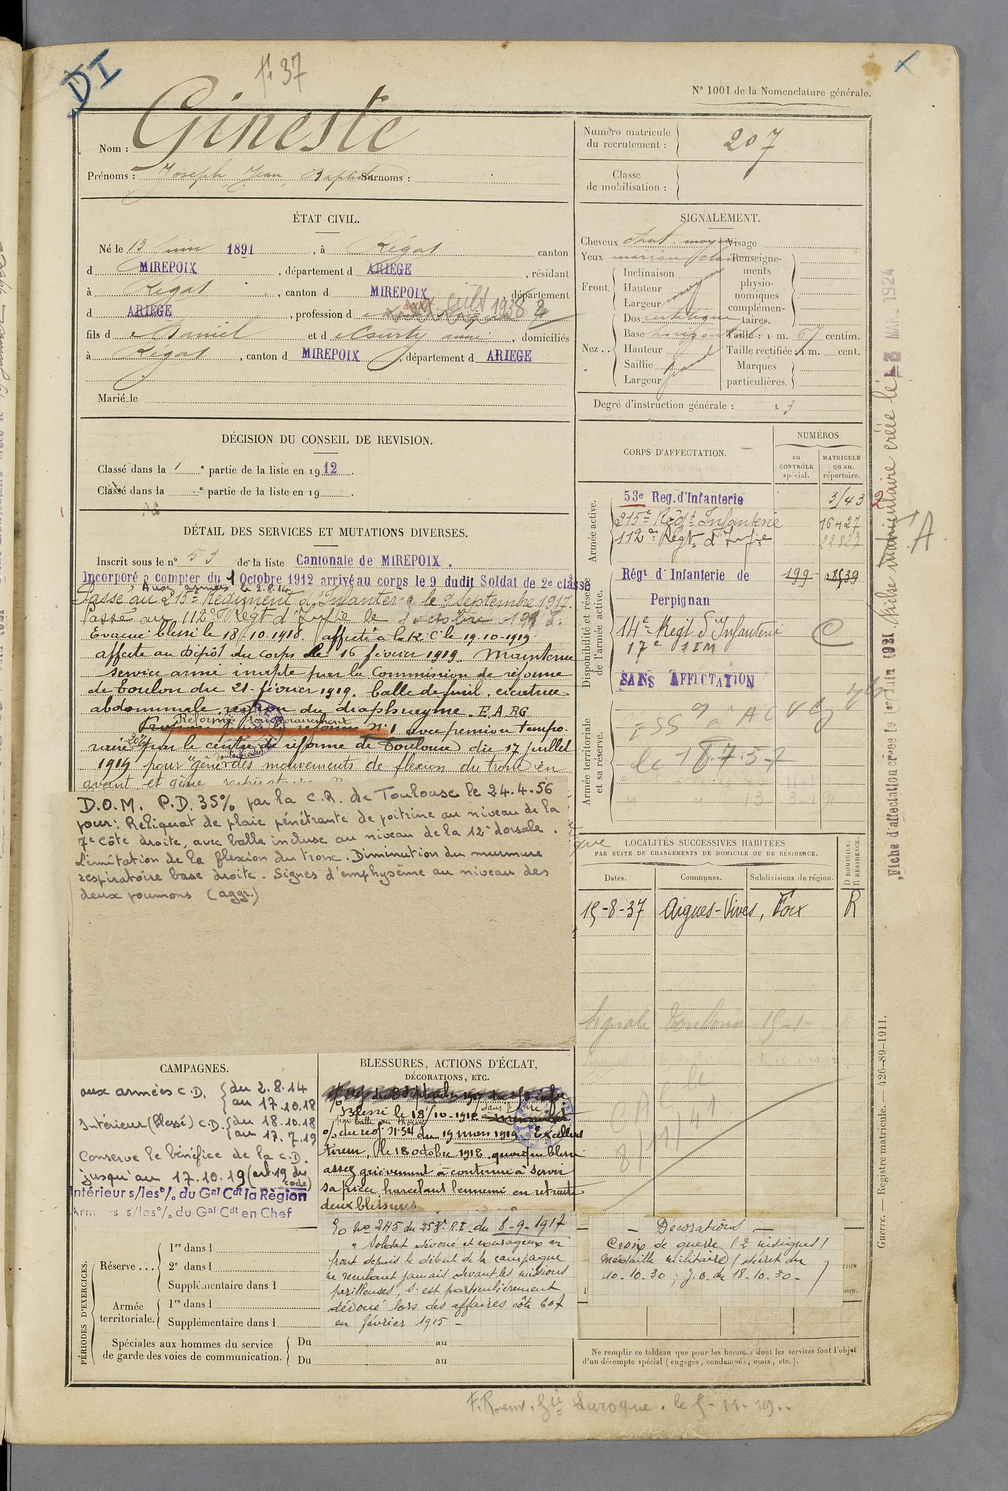 DI
f. 37
N° 1001 de la Nomenclature générale.
Nom : Gineste
Prénoms : Joseph, Jean, Baptiste Surnoms :
Numéro matricule du recrutement : 207
Classe de mobilisation :
ÉTAT CIVIL.
Né le 13 juin 1891, à Régat canton
d MIREPOIX, département d ARIEGE, résidant
à Régat, canton d MIREPOIX, département
d ARIEGE, profession d cult 1938
fils d Daniel et d Courty anne, domiciliés
à Régat, canton d MIREPOIX département d ARIEGE
Marié le
SIGNALEMENT.
Cheveux chat. moyen Visage
Yeux marron clair Renseignements physionomiques complémentaires.
Front. Inclinaison
Hauteur moy
Largeur
Nez .. Dos rectiligne
Base horizontale Taille : 1 m. 67 centim.
Hauteur Taille rectifiée : 1 m. cent.
Saillie Marques particulières.
Largeur
Degré d'instruction générale : 3
DÉCISION DU CONSEIL DE REVISION.
Classé dans la 1e partie de la liste en 1912.
Classé dans la e partie de la liste en 19
DÉTAIL DES SERVICES ET MUTATIONS DIVERSES.
Inscrit sous le n° 53 de la liste Cantonale de MIREPOIX.
Incorporé à compter du 1 Octobre 1912 arrivé au corps le 9 dudit Soldat de 2e classe
Aux armées le 2.8.14
Passé au 215e Régiment d'Infanterie le 9 septembre 1917.
Passé au 112e Régt d'Infie le 3 octobre 1917.
Evacué blessé le 18/10-1918. affecté à la C le 19-10-1919
affecté au dépôt du corps le 16 février 1919. Maintenu
service armé inapte par la Commission de réforme
de Toulon du 21 février 1919. balle de fusil, cicatrice
abdominale région du diaphragme. E.A.RG
Réformé temporairement
Proposé pour la réforme N°1 avec pension tempo-
raire 20% par le centre de réforme de Toulouse du 17 juillet
1919 pour gêne des mouvements de flexion du tronc en
avant et gêne respiratoire
D.O.M. P.D. 35% par la C.R. de Toulouse le 24.4.56
pour : Reliquat de plaie pénétrante de poitrine au niveau de la
7e côte droite, avec balle incluse au niveau de la 12e dorsale.
Limitation de la flexion du tronc. Diminution du murmure
respiratoire base droite. Signes d'emphysème au niveau des
deux poumons (aggr.)
CORPS D'AFFECTATION.
NUMÉROS
au CONTRÔLE spécial.
MATRICULE ou au répertoire.
Armée active.
53e Reg. d'Infanterie 3143
215e Régt Infanterie 16427
112e Régt d'Infie 22827
Disponibilité et réserve de l'armée active.
Régt d'Infanterie de Perpignan 199 2539
14e Regt d'Infanterie
17e SIM
SANS AFFECTATION
Armée territoriale et sa réserve.
le 6.7.57
Fiche d'affectation créée le 1er Juin 1921
-8 MARS 1924
A
LOCALITÉS SUCCESSIVES HABITÉES
PAR SUITE DE CHANGEMENTS DE DOMICILE OU DE RÉSIDENCE.
Dates. Communes. Subdivisions de région. D DOMICILE. R RÉSIDENCE.
15-8-37 Aigues-Vives, Foix R
CAMPAGNES.
aux armées C.D. du 2.8.14 au 17.10.18
Intérieur (blessé) C.D. du 18.10.18 au 17.7.19
Conserve le bénéfice de la C.D.
jusqu'au 17.10.19 (art. 19 du code)
Intérieur s/les o/ du Gal Cdt la Région
Armées s/les o/ du Gal Cdt en Chef
BLESSURES, ACTIONS D'ÉCLAT,
DÉCORATIONS, ETC.
Blessé le 18/10-1918
par balle
o/ du reg. N° 54 du 19 mars 1919. Excellent
tireur, le 18 octobre 1918, quoique blessé
assez grièvement a continué à servir
sa pièce, harcelant l'ennemi en retraite
deux blessures
Eo No 245 du 253e R.I. du 8-9-1917
"Soldat dévoué et courageux au
front depuis le début de la campagne
ne reculant jamais devant les missions
périlleuses, s'est particulièrement
dévoué lors des affaires côte 607
en février 1915 -
- Décorations -
Croix de guerre (2 insignes)
Médaille militaire (décret du
10.10.30 ; J.O. du 18.10.30 - )
PÉRIODES D'EXERCICES.
Réserve ... 1re dans l
2e dans l
Supplémentaire dans l
Armée territoriale. 1re dans l
Supplémentaire dans l
Spéciales aux hommes du service de garde des voies de communication. Du au
Du au
Ne remplir ce tableau que pour les hommes dont les services font l'objet
d'un décompte spécial (engagés, condamnés, omis, etc.).
Guerre. — Registre matricule. 426-89-1911.
F.R. env. Gie Laroque. le 5-11-19..